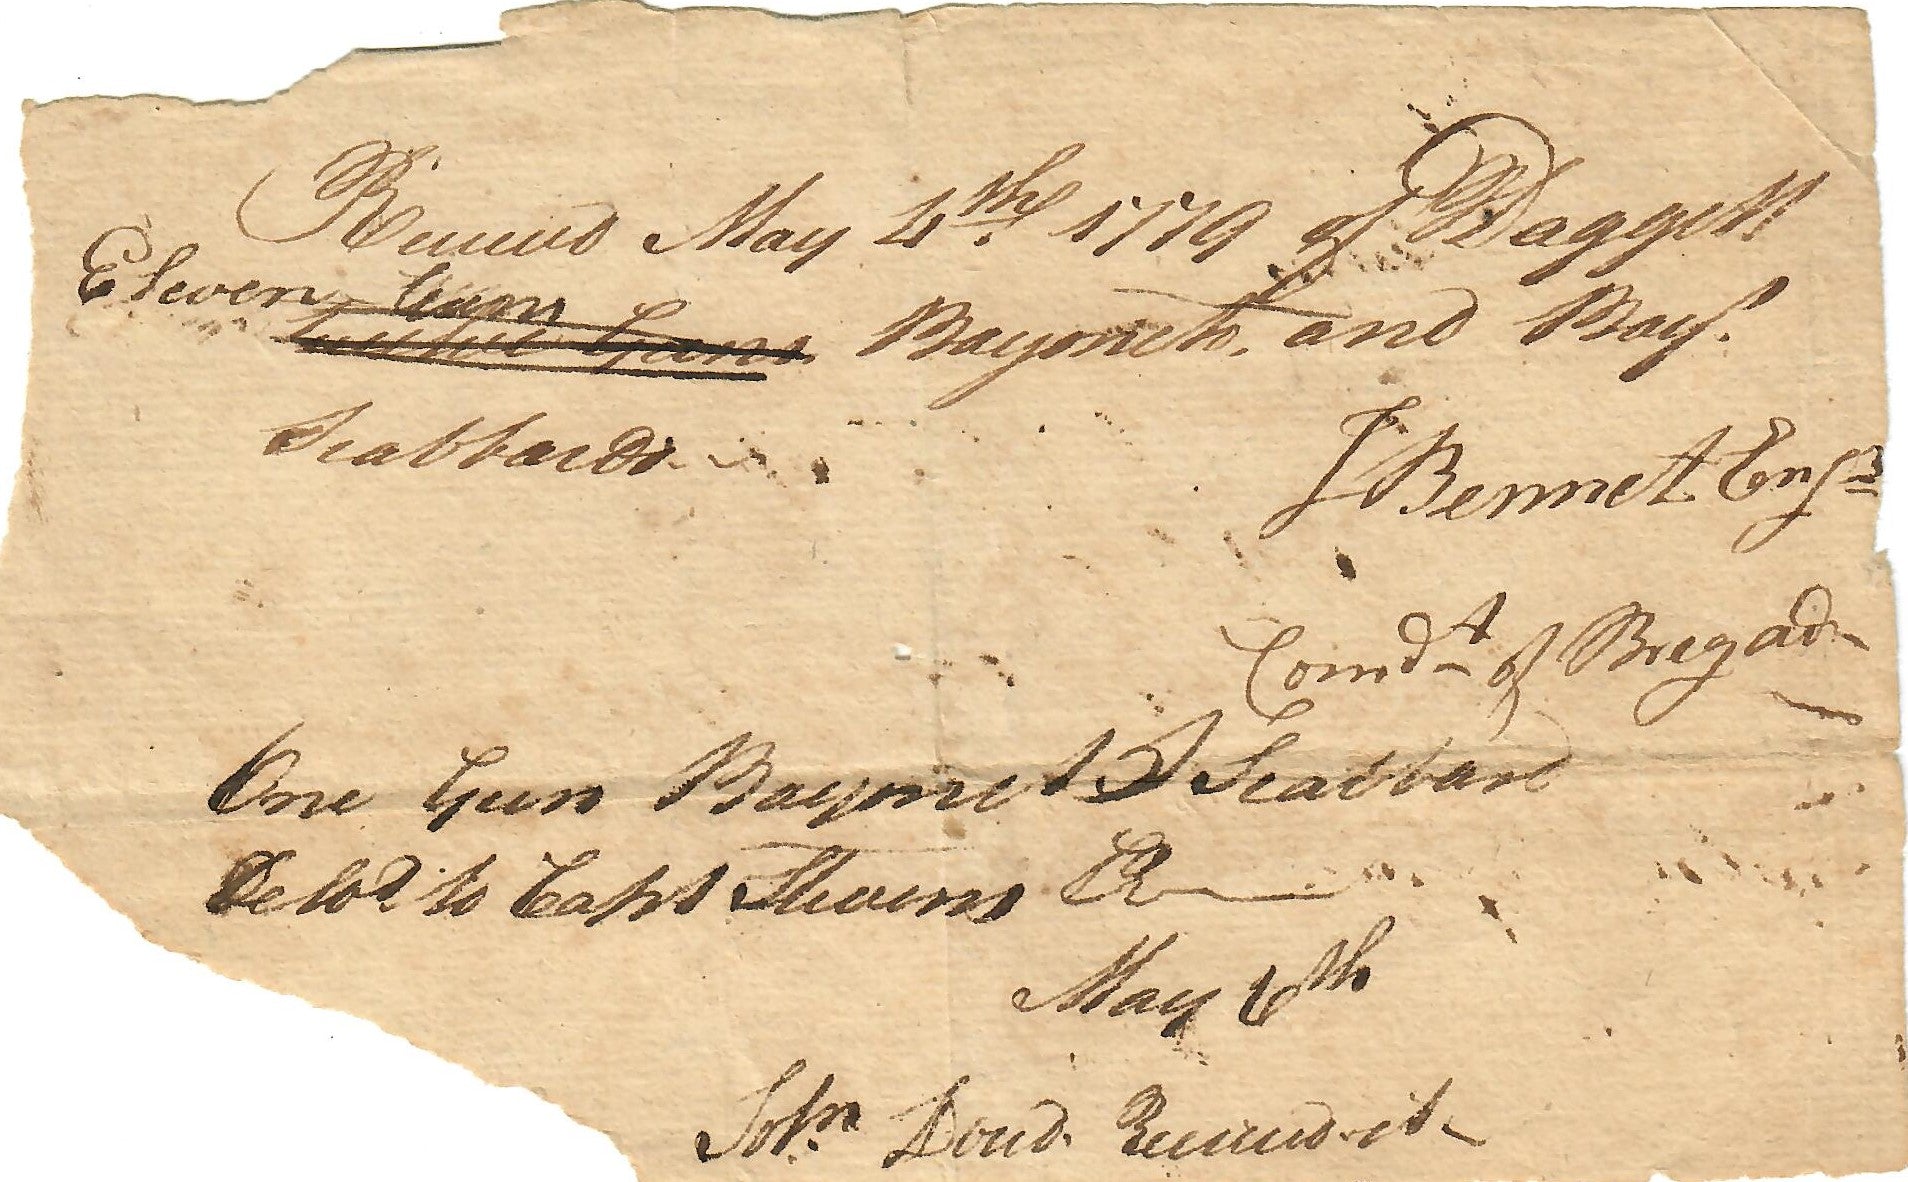 Received May 4th. 1779 of Daggett
Eleven Guns
Twelve Guns Bayonets. and Bay.t
Scabbards.
J Bennet Engn
Comdt of Bregad
One Gun Bayonet & Scabbard
Deld. to Capt Stevens
May 6th
Soln. Doud. Received it